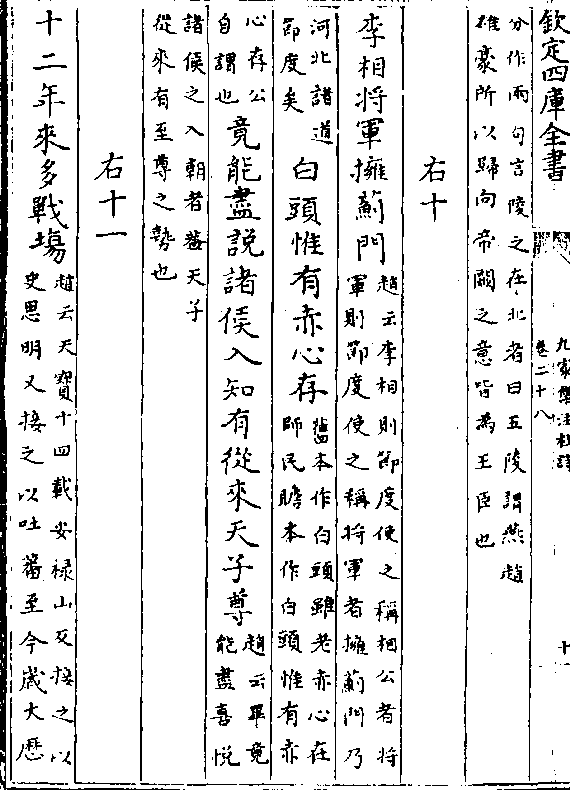 欽定四庫全書
九家集注杜詩
卷二十八
十一
分作兩句言陵之在北者曰五陵謂燕趙
雄豪所以歸向帝闕之意皆為王臣也
右十
李相將軍擁薊門
趙云李相則節度使之稱相公者將
軍則節度使之稱將軍者擁薊門乃
河北諸道
節度矣
白頭惟有赤心存
舊本作白頭雖老赤心在
師民瞻本作白頭惟有赤
心存公
自謂也
竟能盡說諸侯入知有從來天子尊
趙云畢竟
能盡喜悅
諸侯之入朝者蓋天子
從來有至尊之勢也
右十一
十二年來多戰場
趙云天寶十四載安祿山反接之以
史思明又接之以吐蕃至今歲大歴